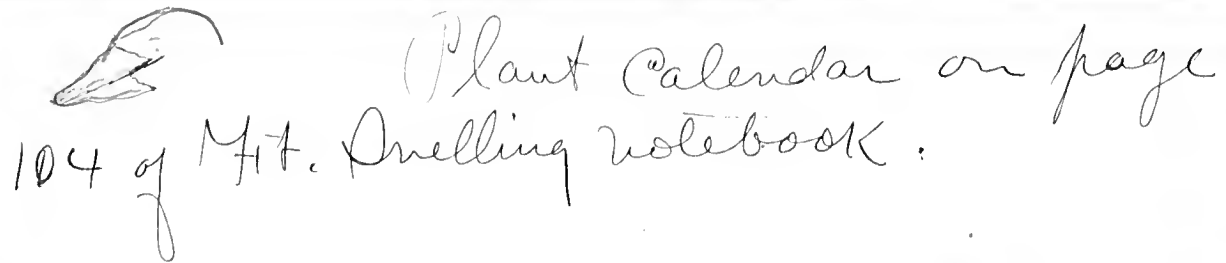 Plant Calendar on page
104 of Ft. Snelling notebook.